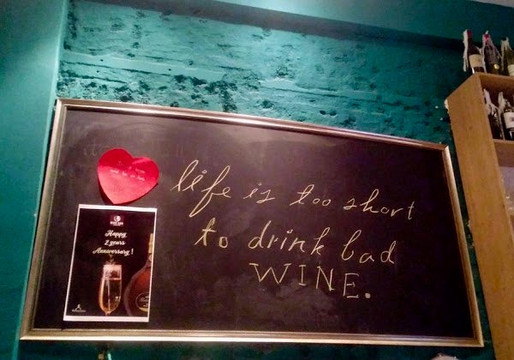 life is too short
to drink bad
WINE.
Happy
2 years
Anniversary!